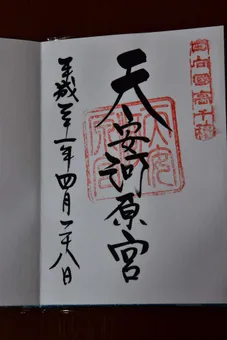 日向國高千穂
天安河原宮
平成三十一年四月二十八日